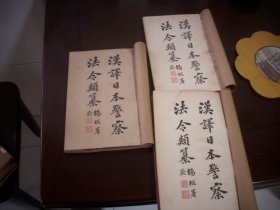 漢譯日本警察
法令類纂
漢譯日本警察
法令類纂
漢譯日本警察
法令類纂